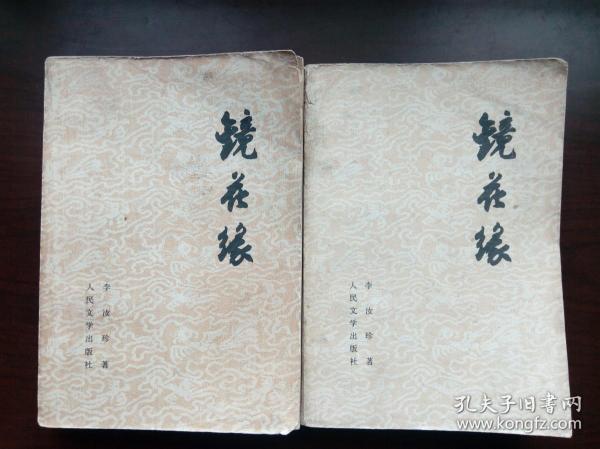 镜花缘
李汝珍著
人民文学出版社
镜花缘
李汝珍著
人民文学出版社
孔夫子旧书网
www.kongfz.com